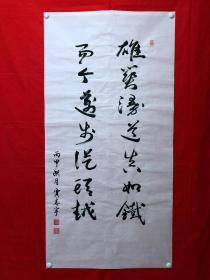 雄關漫道真如鐵
而今邁步從頭越
丙申